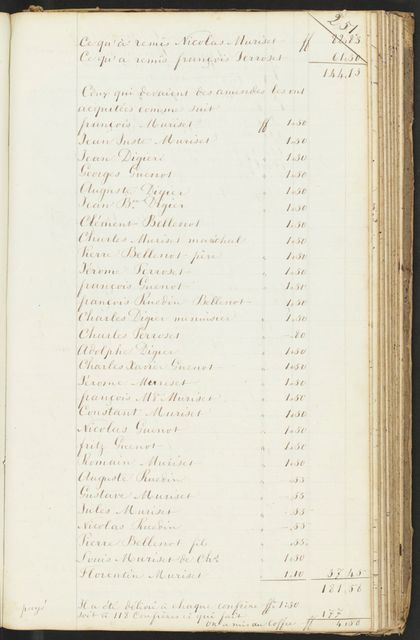 251
Ce qu'a remis Nicolas Muriset ff 82.83
Ce qu'a remis françois Perroset 61.30
144.13
Ceux qui devaient des amendes les ont
acquitées comme suit
françois Muriset ff 1.50
Jean Juste Muriset " 1.50
Jean Digier " 1.50
Georges Guenot " 1.50
Auguste Digier " 1.50
Jean Bte Digier " 1.50
Clément Bellenot " 1.50
Charles Muriset maréchal " 1.50
Pierre Bellenot père " 1.50
Jérome Perroset " 1.50
françois Guenot " 1.50
françois Ruedin Bellenot " 1.50
Charles Digier menuisier " 1.50
Charles Perroset " -.80
Adolphe Digier " 1.50
Charles Xavier Guenot " 1.50
Jérome Muriset " 1.50
françois Ml Muriset " 1.50
Constant Muriset " 1.50
Nicolas Guenot " 1.50
fritz Guenot " 1.50
Romain Muriset " 1.50
Auguste Ruedin " .55
Gustave Muriset " .55
Jules Muriset " .55
Nicolas Ruedin " .55
Pierre Bellenot fils .55
Louis Muriset de Chs 1.50
Florentin Muriset " 1.10 37.45
181.58
payé Il a été délivré à chaque confrère ff. 1.50
soit à 118 Confrères ce qui fait 177
On a mis au Coffre ff 4.50